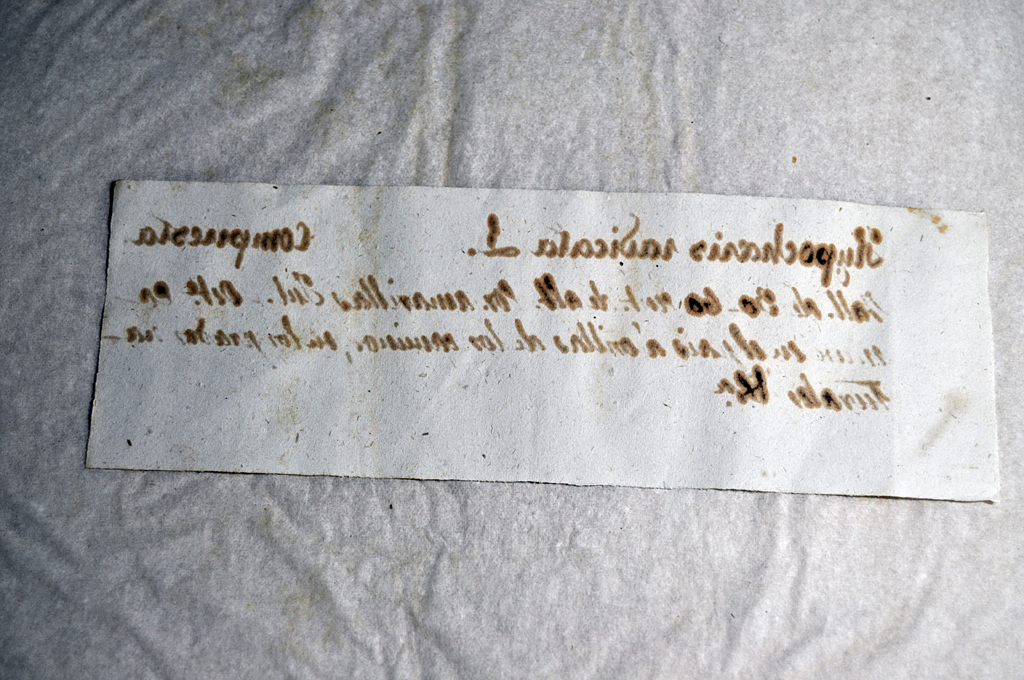 Hypocharis radicata L. Compuesta
Tall. de 20-60 cent. de alt. fl. amarillas Jul.-Oct. Co-
mun en el pais á orillas de los caminos, en los prados na-
turales &a.